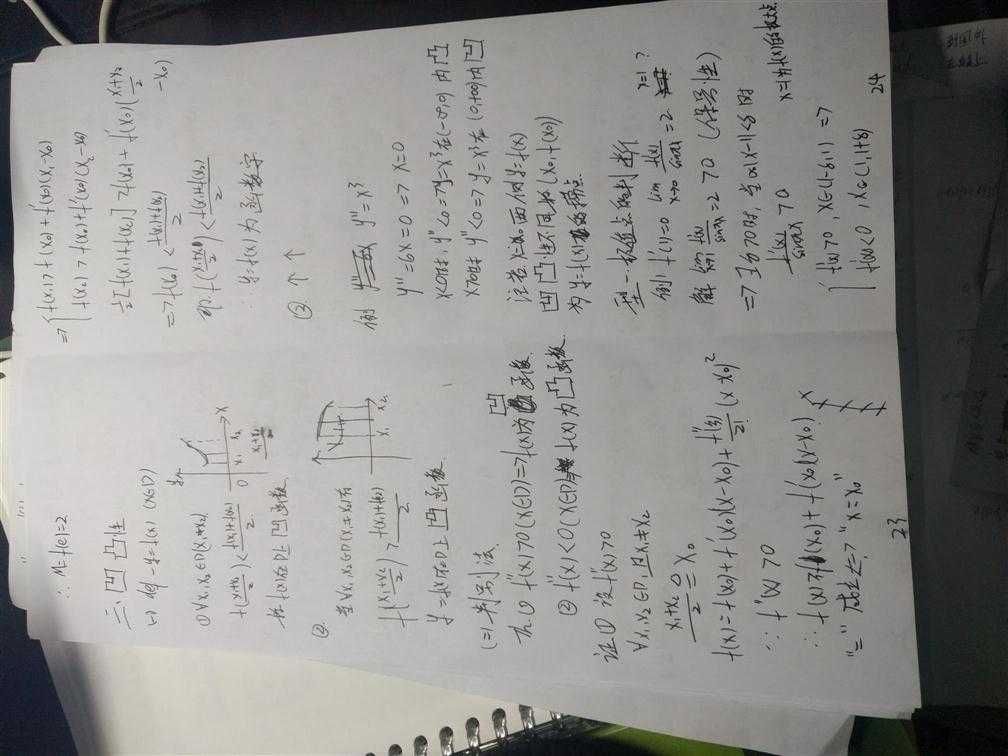 ∴ M=f(e)=2
三、凹凸性
(一) def - y=f(x) (x∈D)
① ∀x₁,x₂∈D(x₁≠x₂)
f(x₁+x₂/2) < f(x₁)+f(x₂)/2
称f(x)在D上凹函数.
y
x
0 x₁ x₂
x₁+x₂/2
②.
若∀x₁,x₂∈D(x₁≠x₂)有
f(x₁+x₂/2) > f(x₁)+f(x₂)/2
x₁ x₂
y=f(x)在D上凸函数
(二) 判别法
① f''(x)>0(x∈D)=>f(x)为凹函数.
② f''(x)<0(x∈D) f(x)为凸函数.
证① 设f''(x)>0
∀x₁,x₂∈D,且x₁≠x₂
x₁+x₂/2 = x₀
f(x)=f(x₀)+f'(x₀)(x-x₀)+f''(ξ)/2!(x-x₀)²
∵ f''(x)>0
∴ f(x)≥f(x₀)+f'(x₀)(x-x₀)
"="成立<=>"x=x₀"
23
=> { f(x₁)>f(x₀)+f'(x₀)(x₁-x₀)
f(x₂)>f(x₀)+f'(x₀)(x₂-x₀)
½[f(x₁)+f(x₂)]>f(x₀)+f'(x₀)(x₁+x₂/2 -x₀)
=>f(x₀)<f(x₁)+f(x₂)/2
即f(x₁+x₂/2)<f(x₁)+f(x₂)/2
∴ y=f(x)为凹数字
② ↑ ↑
例 y''=x³
y''=6x=0=>x=0
x<0时 y''<0=>y=x³在(-∞,0)内凸
x>0时 y''<0=>y=x³在(0,+∞)内凹
注若x=x₀两侧y=f(x)
凹凸性不同,称(x₀,f(x₀))
为y=f(x)的拐点.
型一 极值点的判断
例1 f'(1)=0 lim x→0 f'(x)/sinπx=2 x=1?
解 lim f'(x)/sinπx=2>0 (保号性)
=>∃δ>0时,当0<|x-1|<δ时
f'(x)/sinπx>0
{ f'(x)>0, x∈(1-δ,1) =>
f'(x)<0, x∈(1,1+δ)
x=1为f(x)的极大点
24